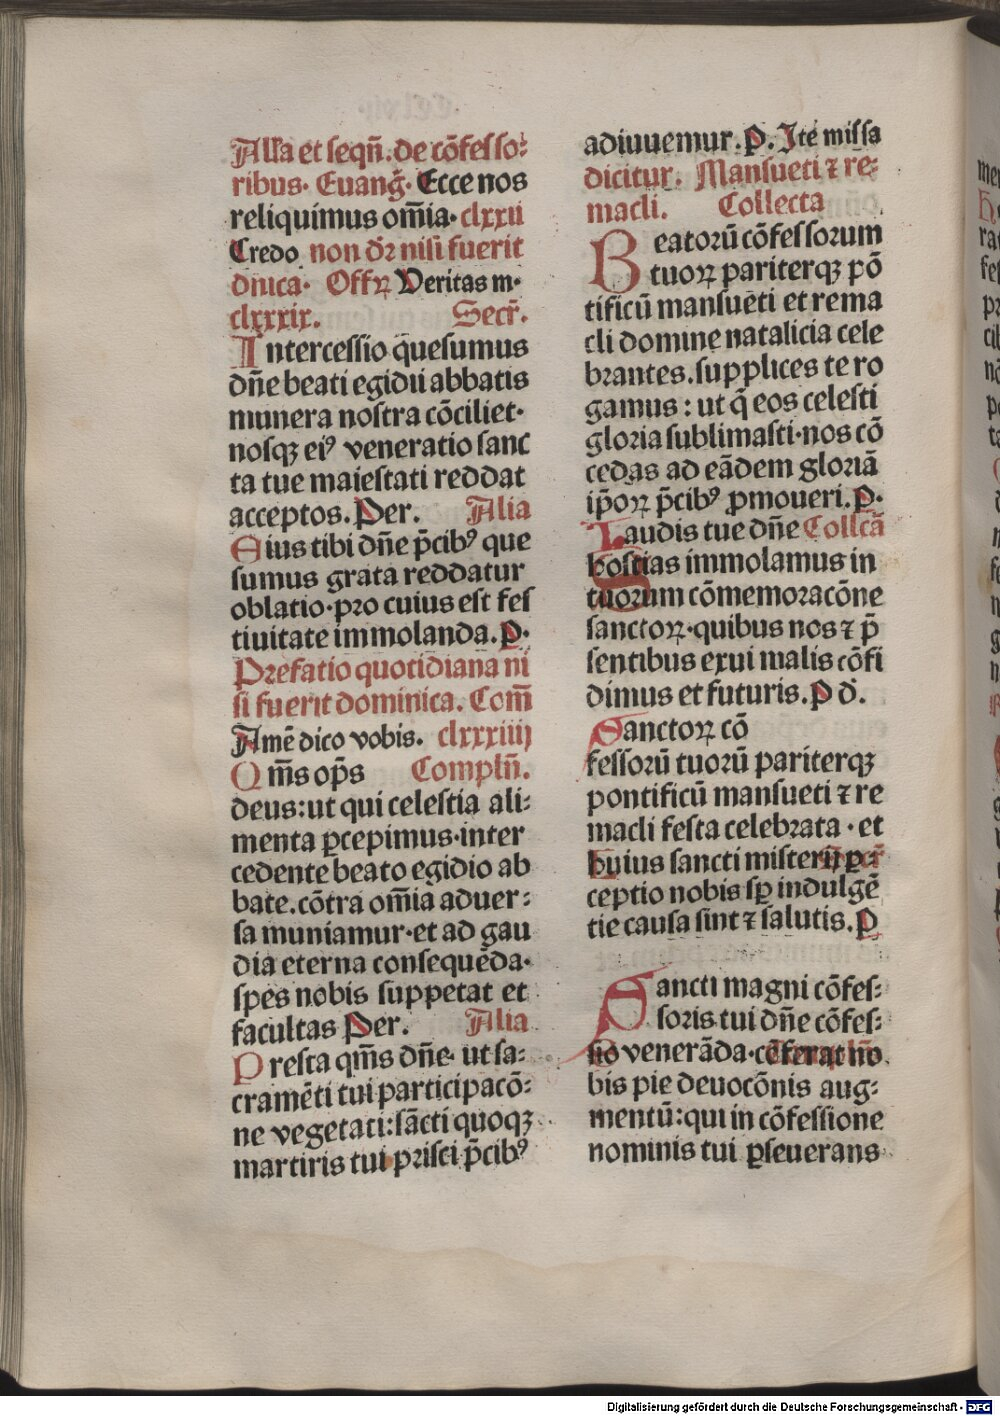 Alla et seqñ. de cõfesso⸗
ribus. Euang̃. Ecce nos
reliquimus om̃ia. clxxii
Credo non dr̃ nisi fuerit
dñica. Offꝝ Veritas m.
clxxxix. Secr̃.
Intercessio q̃uesumus
dñe beati egidii abbatis
munera nostra cõciliet.
nosqꝫ eiꝰ veneratio sanc
ta tue maiestati reddat
acceptos. Per. Alia
Eius tibi dñe p̃cibꝰ que
sumus grata reddatur
oblatio. pro cuius est fes
tiuitate immolanda. P.
Prefatio quotidiana ni
si fuerit dominica. Com̃
Amẽ dico vobis. clxxxiiij
Qm̃s op̃s Complñ.
deus: ut qui celestia ali⸗
menta ꝑcepimus. inter
cedente beato egidio ab
bate. cõtra om̃ia aduer⸗
sa muniamur. et ad gau
dia eterna consequẽda.
spes nobis suppetat et
facultas Per. Alia
Presta qm̃s dñe ut sa⸗
cramẽti tui participacõ⸗
ne vegetati: sãcti quoqꝫ
martiris tui prisci p̃cibꝰ
adiuuemur. P. Ite missa
dicitur. Mansueti ⁊ re⸗
macli. Collecta
Beatorũ cõfessorum
tuoꝝ pariterqꝫ põ
tificũ mansueti et rema
cli domine natalicia cele
brantes. supplices te ro
gamus: ut q̃ eos celesti
gloria sublimasti. nos cõ
cedas ad eãdem gloriã
ip̃oꝝ p̃cibꝰ ꝓmoueri. P.
Laudis tue dñe Collcã
hostias immolamus in
tuorum cõmemoracõne
sanctoꝝ. quibus nos ⁊ p̃
sentibus exui malis cõfi
dimus et futuris. P d̃.
Sanctoꝝ cõ
fessorũ tuorũ pariterqꝫ
pontificũ mansueti ⁊ re
macli festa celebrata. et
huius sancti misterij ꝑ⸗
ceptio nobis sꝑ indulgẽ
tie causa sint ⁊ salutis. P
Sancti magni cõfes⸗
soris tui dñe cõfes⸗
sio venerãda. cõferat no
bis pie deuocõnis aug⸗
mentũ: qui in cõfessione
nominis tui ꝑseuerans
Digitalisierung gefördert durch die Deutsche Forschungsgemeinschaft - DFG